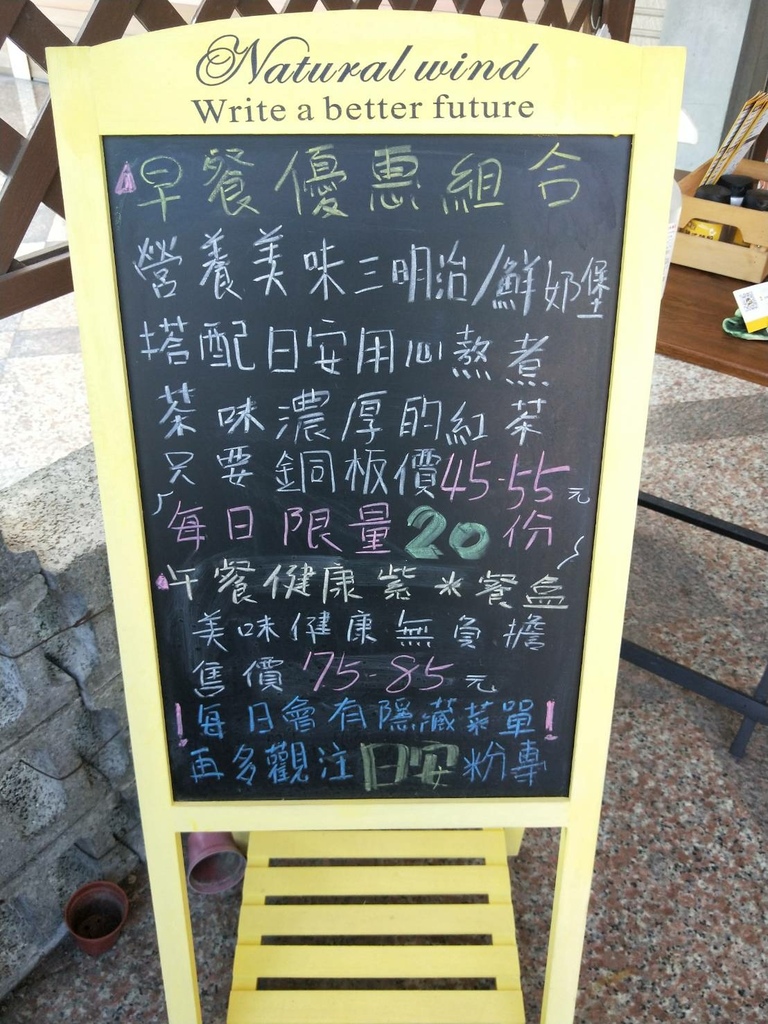 Natural wind
Write a better future
早餐優惠組合
營養美味三明治/鮮奶堡
搭配日安用心熬煮
茶味濃厚的紅茶
只要銅板價45-55元
每日限量20份
午餐健康紫米餐盒
美味健康無負擔
售價75-85元
!每日會有隱藏菜單!
再多觀注日安粉專